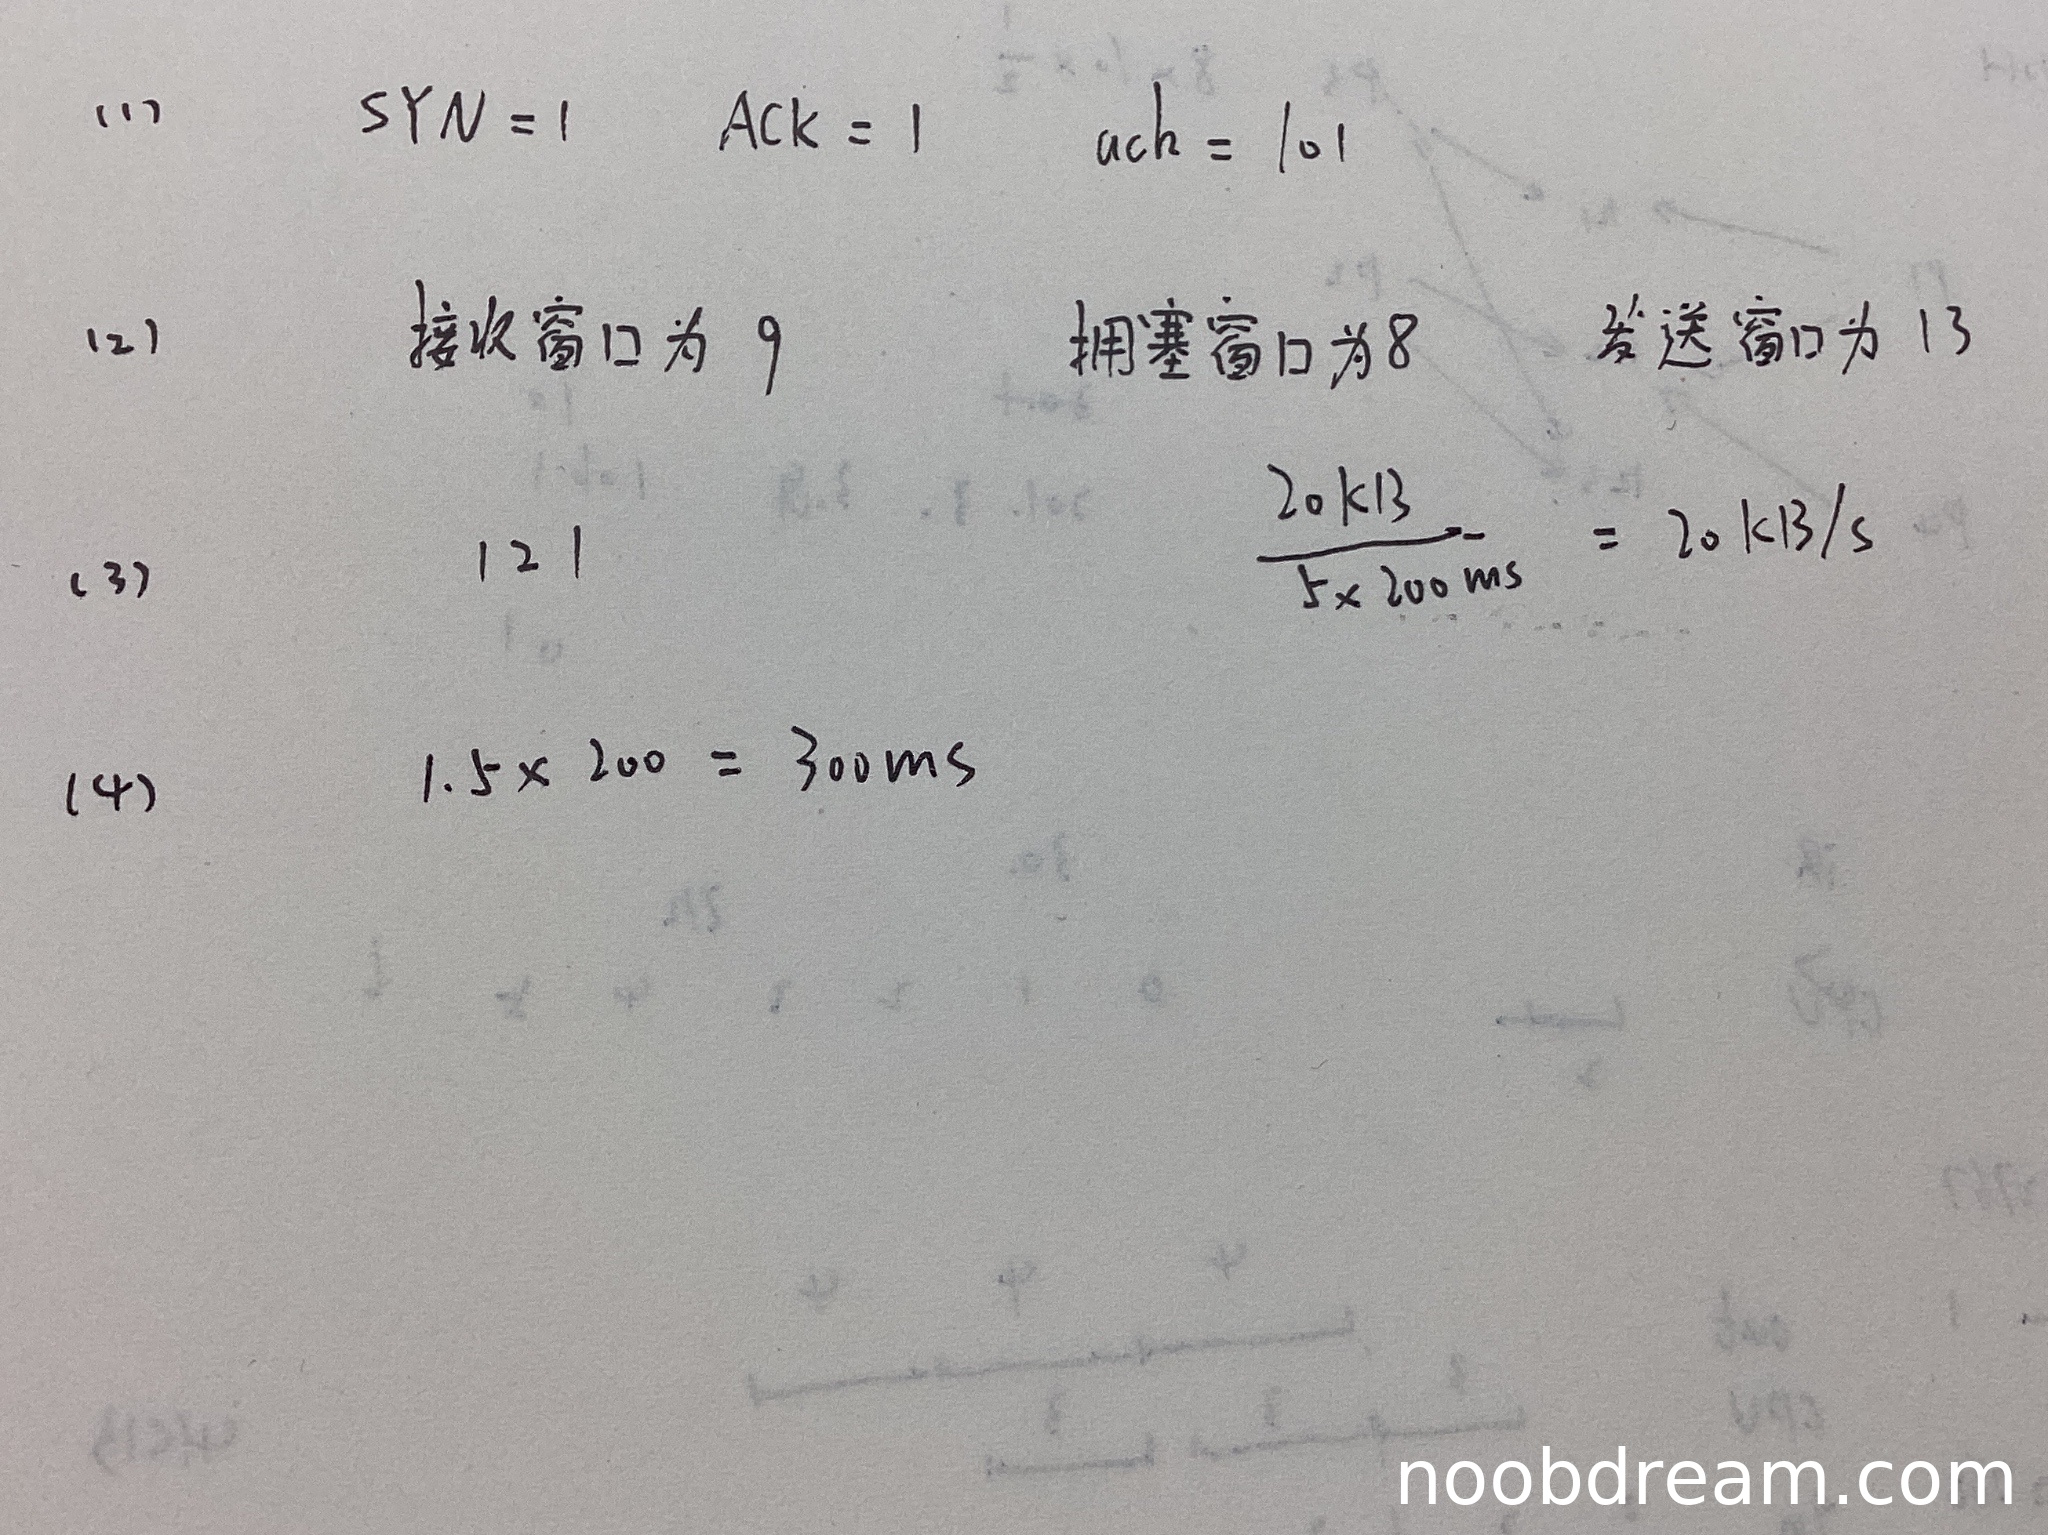 (1) SYN = 1 ACK = 1 ack = 101
(2) 接收窗口为 9 拥塞窗口为8 发送窗口为 13
(3) 121 20KB / 5×200ms = 20KB/s
(4) 1.5× 200 = 300ms
noobdream.com